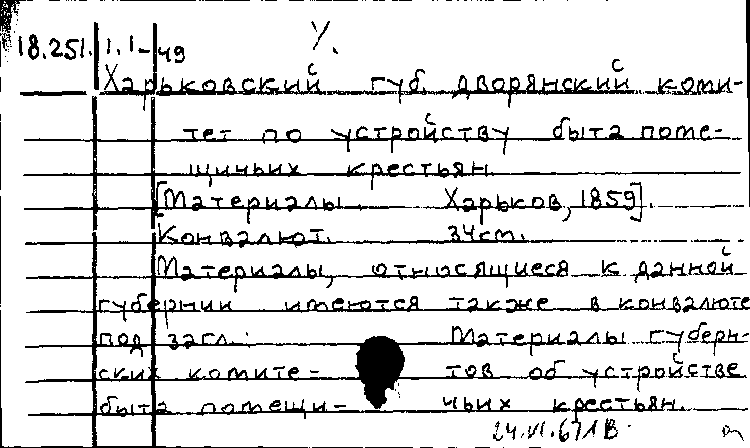 18.251. 1.1-49 У.
Харьковский губ. дворянский коми-
тет по устройству быта поме-
щичьих крестьян.
[Материалы. Харьков, 1859].
Конвалют. 34cm.
Материалы, относящиеся к данной
губернии имеются также в конвалюте
под загл.: Материалы губерн-
ских комите- тов об устройстве
быта помещи- чьих крестьян.
24.VI.67